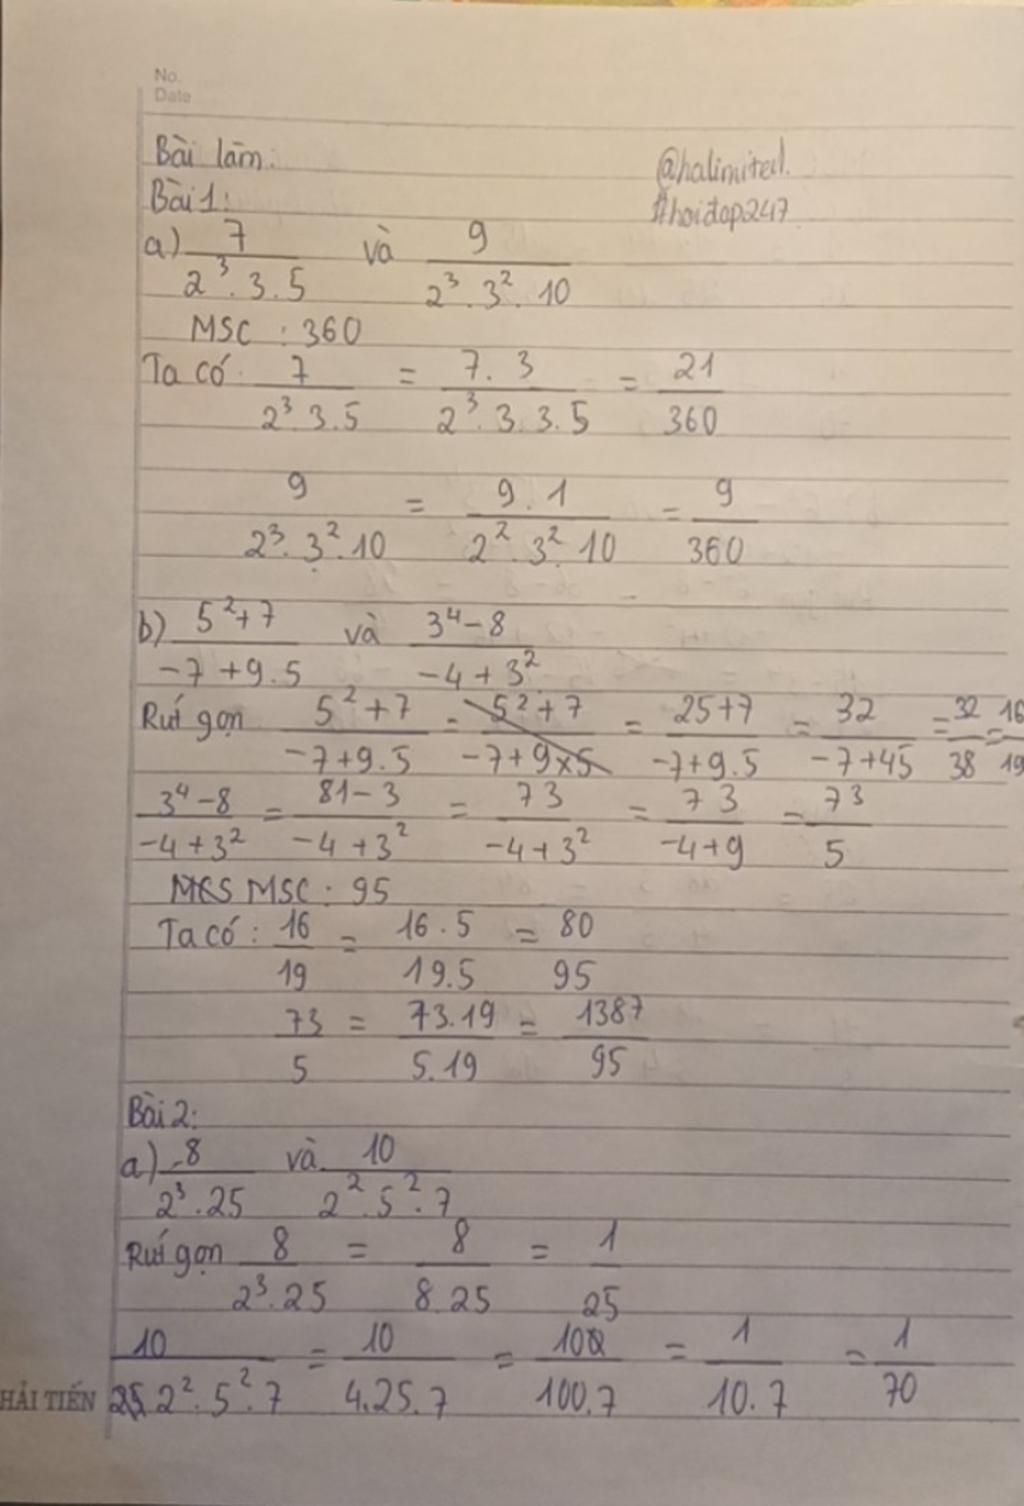 No.
Date
Bài làm:
@halimited.
Bài 1:
#hoidap247
a) 7/(2³.3.5) và 9/(2³.3².10)
MSC : 360
Ta có 7/(2³.3.5) = (7.3)/(2³.3.3.5) = 21/360
9/(2³.3².10) = (9.1)/(2².3².10) = 9/360
b) (5²+7)/(-7+9.5) và (3⁴-8)/(-4+3²)
Rút gọn (5²+7)/(-7+9.5) = (5²+7)/(-7+9×5) = (25+7)/(-7+9.5) = 32/(-7+45) = 32/38 = 16/19
(3⁴-8)/(-4+3²) = (81-3)/(-4+3²) = 73/(-4+3²) = 73/(-4+9) = 73/5
MCS MSC : 95
Ta có : 16/19 = (16.5)/(19.5) = 80/95
73/5 = (73.19)/(5.19) = 1387/95
Bài 2:
a) -8/(2³.25) và 10/(2².5².7)
Rút gọn 8/(2³.25) = 8/(8.25) = 1/25
10/(2².5².7) = 10/(4.25.7) = 10/(100.7) = 1/(10.7) = 1/70
HẢI TIẾN